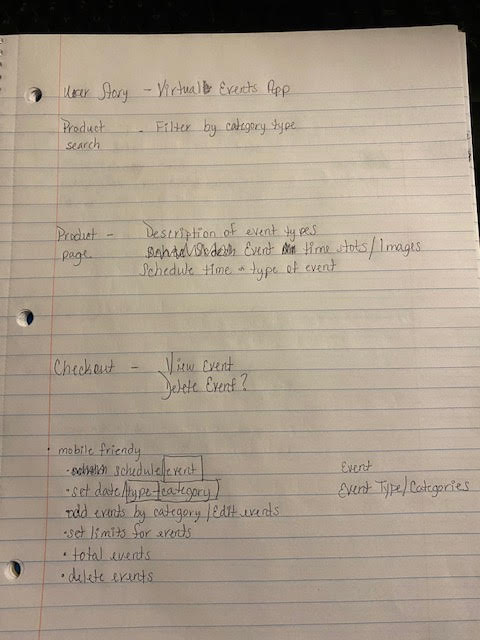 User Story - Virtual Events App
Product - Filter by category type
search
Product - Description of event types
page Event time slots/Images
Schedule time - type of event
Checkout - View Event
Delete Event?
• mobile friendly
• schedule event
• set date/type-category/
• add events by category/Edit events
• set limits for events
• total events
• delete events
Event
Event Type/Categories